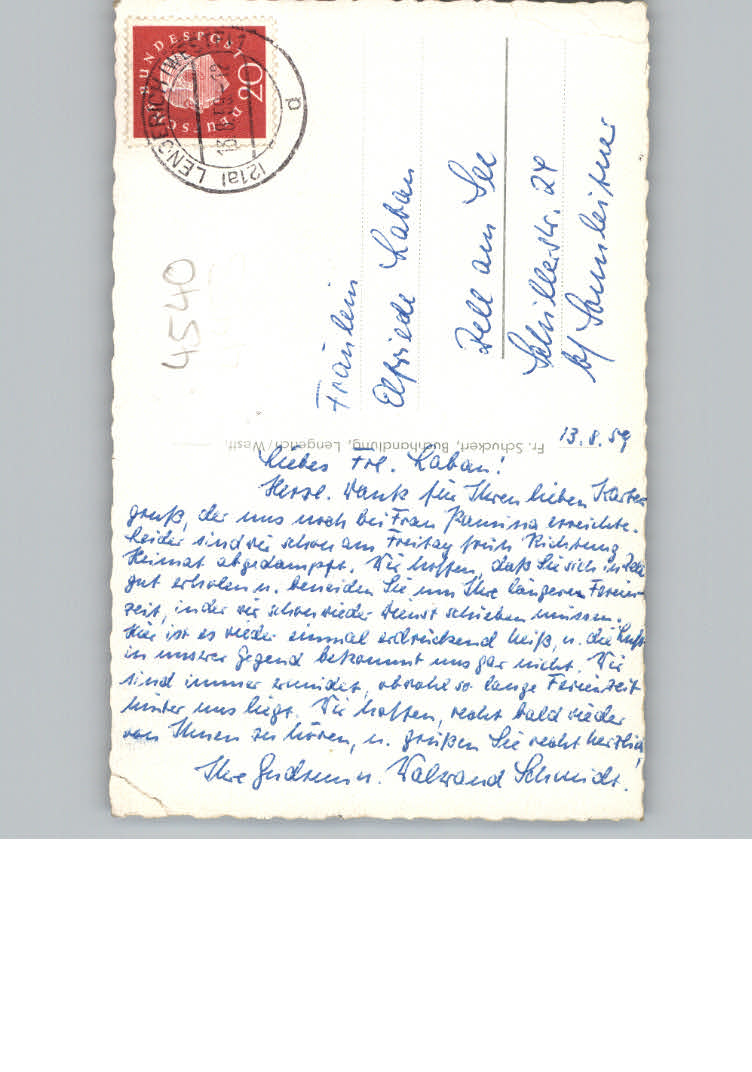 DEUTSCHE BUNDESPOST
20
(21a) LENGERICH (WESTF)
13.8.59
a
4540
Fräulein
Elfriede Laban
Zell am See
Schillerstr. 24
b/ Sonnleitner
Fr. Schuckert, Buchhandlung, Lengerich/Westf.
13.8.59
Liebes Frl. Laban!
Herzl. Dank für Ihren lieben Karten-
gruß, der uns noch bei Frau erreichte.
Leider sind wir schon am Freitag früh Richtung
Heimat abgedampft. Wir hoffen, daß Sie sich in Zell
gut erholen u. beneiden Sie um Ihre längere Ferien-
zeit, in der wir schon wieder Dienst schieben müssen.
Hier ist es wieder einmal erdrückend heiß, u. die Luft
in unserer Gegend bekommt uns gar nicht. Wir
sind immer ermüdet, obwohl so lange Ferienzeit
hinter uns liegt. Wir hoffen, recht bald wieder
von Ihnen zu hören, u. grüßen Sie recht herzlich
Ihre Gudrun u. Schmidt.